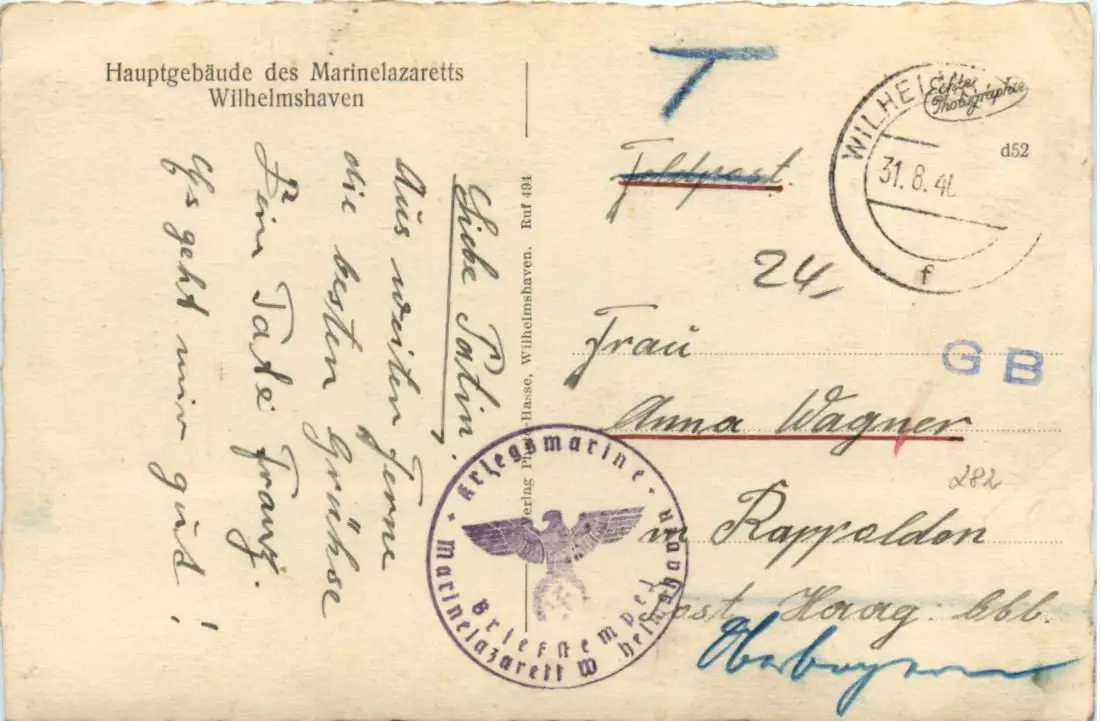 Hauptgebäude des Marinelazaretts
Wilhelmshaven
Liebe Patin!
Aus weiter Ferne
die besten Grühse
Dein Pate Franz.
Es geht mir gut!
Verlag Hasse, Wilhelmshaven. Ruf 494
T
Feldpost
24,
Frau
Anna Wagner
in Rappolden
Post Haag Obb.
Oberbayern
GB
282
WILHE
31.8.4
f
Echte
Photographie
d52
Kriegsmarine
Briefstempel
Marinelazarett Wilhelmshaven